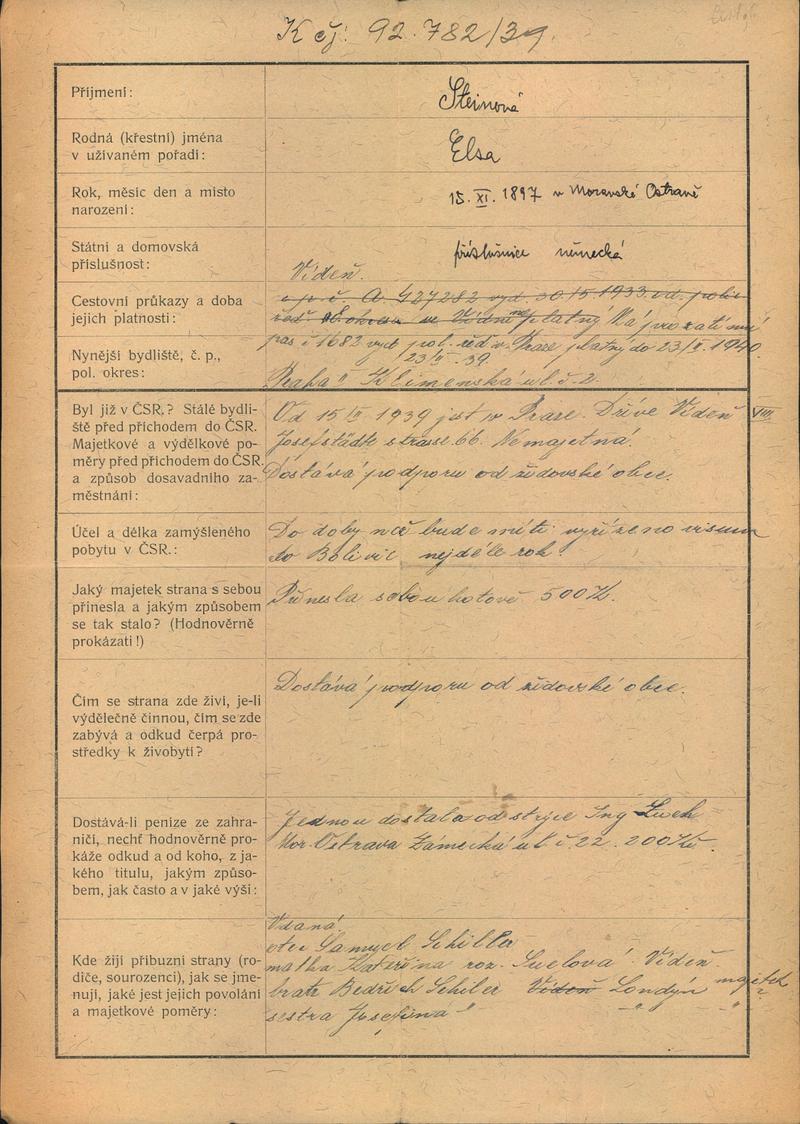 K čj: 92.782/39.
Příjmení:
Steinová
Rodná (křestní) jména
v užívaném pořadí:
Elsa
Rok, měsíc den a místo
narození:
15. XI. 1897 v Moravské Ostravě
Státní a domovská
příslušnost:
příslušnice německá
Vídeň.
Cestovní průkazy a doba
jejich platnosti:
č. A 427282 vyd. 30/5 1933 od polic.
ve Vídni neplatný Má prozatímní
pas č 1682 vyd pol. řed v Praze platný do 23/II. 1940.
23/II. 39.
Nynější bydliště, č. p.,
pol. okres:
Praha II Klimenská ul. č. 2.
Byl již v ČSR.? Stálé bydli-
ště před příchodem do ČSR.
Majetkové a výdělkové po-
měry před příchodem do ČSR.
a způsob dosavadního za-
městnání:
Od 15/II 1939 jest v Praze. Dříve Vídeň VIII.
Josefstädte strasse 66. Nemajetná.
Dostává podporu od židovské obce.
Účel a délka zamýšleného
pobytu v ČSR.:
Do doby než bude míti vyřízeno visum
do Bolivie nejdéle rok.
Jaký majetek strana s sebou
přinesla a jakým způsobem
se tak stalo? (Hodnověrně
prokázati!)
Přinesla sebou hotově 500 K.
Čím se strana zde živí, je-li
výdělečně činnou, čím se zde
zabývá a odkud čerpá pro-
středky k živobytí?
Dostává podporu od židovské obce.
Dostává-li peníze ze zahra-
ničí, nechť hodnověrně pro-
káže odkud a od koho, z ja-
kého titulu, jakým způso-
bem, jak často a v jaké výši:
Jednou dostala od strýce Ing
Mor. Ostrava Zámecká ul č. 22. 200 Kč.
Kde žijí příbuzní strany (ro-
diče, sourozenci), jak se jme-
nují, jaké jest jejich povolání
a majetkové poměry:
Vdaná
otec Samuel Schiller
matka Kateřina roz. Vídeň
bratr Bedřich Schiler Vídeň Londýn
sestra Josefina " " "